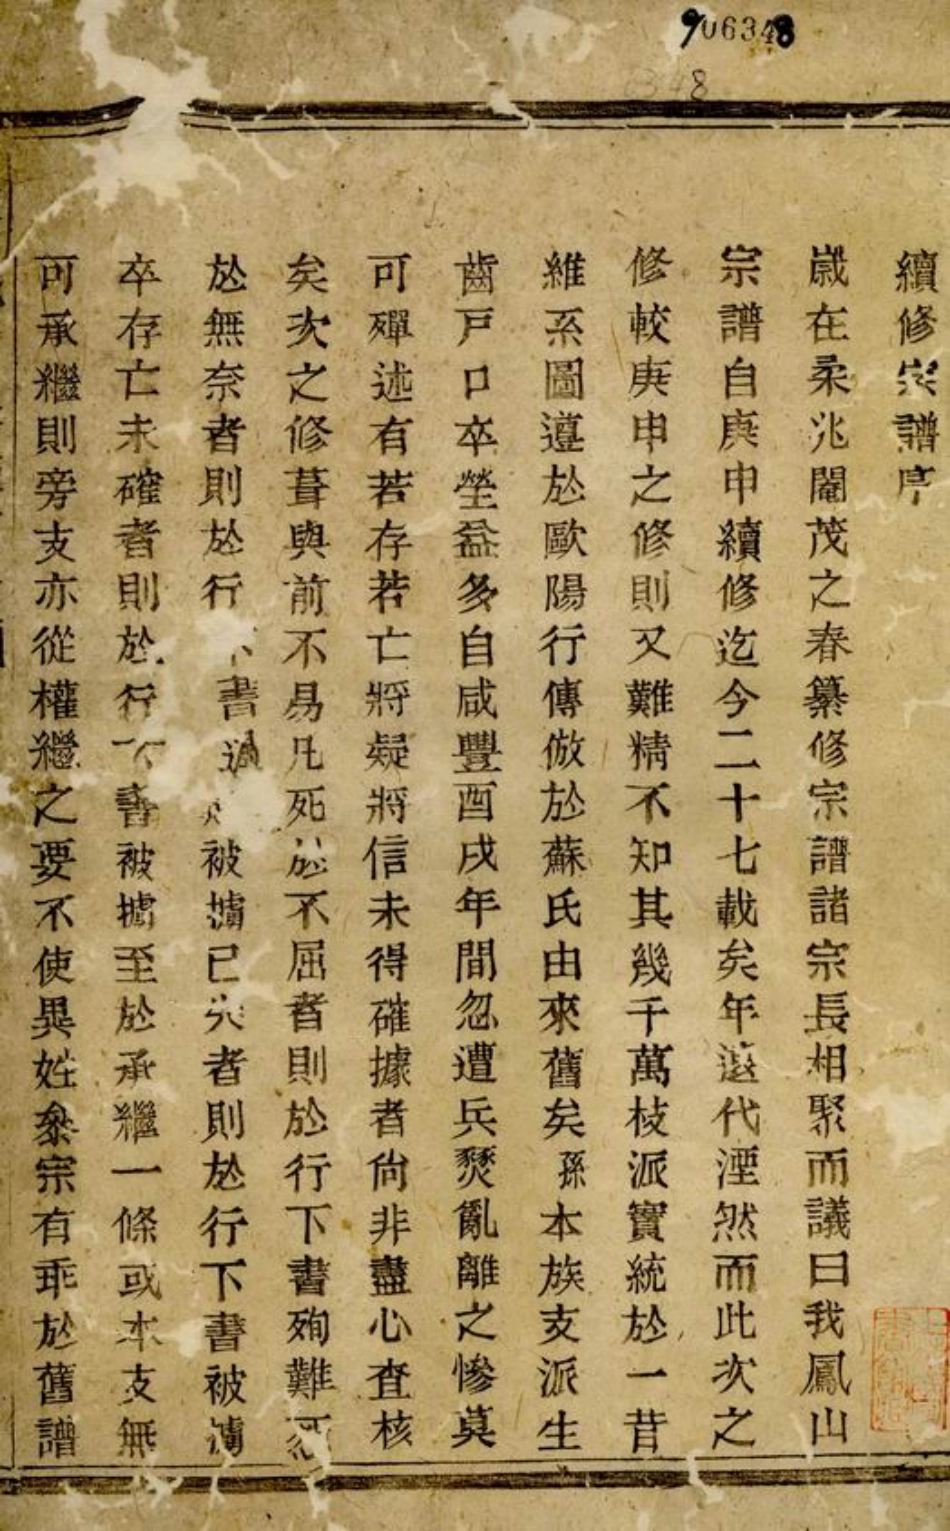 906348
348
續修宗譜序
歲在柔兆閹茂之春纂修宗譜諸宗長相聚而議曰我鳳山
宗譜自庚申續修迄今二十七載矣年遠代湮然而此次之
修較庚申之修則又難精不知其幾千萬枝派實統於一昔
維系圖遵於歐陽行傳倣於蘇氏由來舊矣孫本族支派生
齒戶口卒塋益多自咸豐酉戌年間忽遭兵燹亂離之慘莫
可殫述有若存若亡將疑將信未得確據者尙非盡心查核
矣次之修葺與前不易凡死於不屈者則於行下書殉難
於無奈者則於行書被擄已久者則於行下書被擄
卒存亡未確者則於行下書被擄至於承繼一條或本支無
可承繼則旁支亦從權繼之要不使異姓叅宗有乖於舊譜